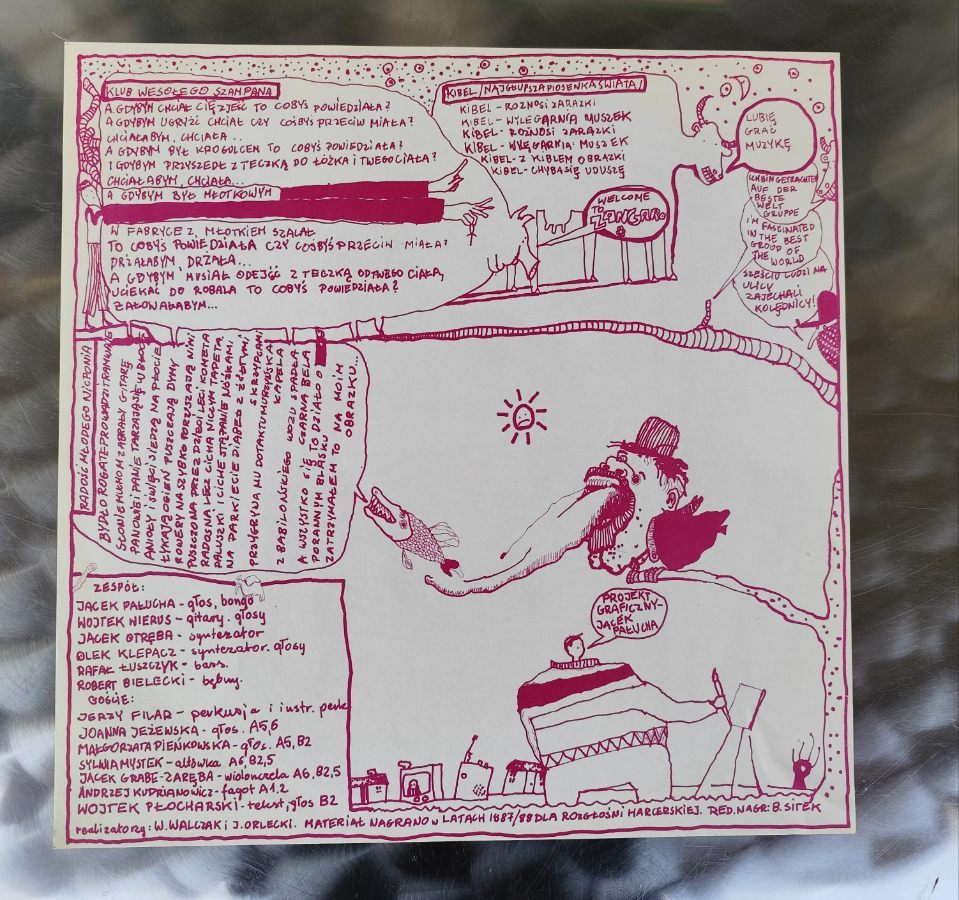 KLUB WESOŁEGO SZAMPANA
A GDYBYM CHCIAŁ CIĘ ZJEŚĆ TO COBYŚ POWIEDZIAŁA?
A GDYBYM UGRYŹĆ CHCIAŁ CZY COBYŚ PRZECIW MIAŁA?
CHCIAŁABYM, CHCIAŁA...
A GDYBYM BYŁ KROGULCEM TO COBYŚ POWIEDZIAŁA?
I GDYBYM PRZYSZEDŁ Z TECZKĄ DO ŁÓŻKA I TWEGO CIAŁA?
CHCIAŁABYM, CHCIAŁA...
A GDYBYM BYŁ MŁOTKOWYM
W FABRYCE Z, MŁOTKIEM SZALAŁ
TO COBYŚ POWIEDZIAŁA CZY COBYŚ PRZECIW MIAŁA?
DRŻAŁABYM, DRŻAŁA...
A GDYBYM, MUSIAŁ ODEJŚĆ Z TECZKĄ OD TWEGO CIAŁA,
UCIEKAĆ DO ROBALA TO COBYŚ POWIEDZIAŁA?
ŻAŁOWAŁABYM...
KIBEL /NAJGŁUPSZA PIOSENKA ŚWIATA/
KIBEL - ROZNOSI ZARAZKI
KIBEL - WYLĘGARNIA MUSZEK
KIBEL - ROZNOSI ZARAZKI
KIBEL - WYLĘGARNIA MUSZEK
KIBEL - Z KIBLEM OBRAZKI
KIBEL - CHYBA SIĘ UDUSZĘ
LUBIĘ
GRAĆ
MUZYKĘ
WELCOME
TO
ICH BIN GETRACHTEN
AUF DER
BESTE
WELT
GRUPPE
I'M FASCINATED
IN THE BEST
GROUP OF
THE WORLD
SZEŚCIU LUDZI NA
ULICY
ZAJECHALI
KOLĘDNICY!
RADOŚĆ MŁODEGO NICPONIA
BYDŁO ROGATE PROWADZI TRAMWAJE
SŁONIE MUCHOM ZABRAŁY GITARĘ
PANOWIE I PANIE TARZAJĄ SIĘ W BŁOCIE
ANIOŁY I ŚWIĘCI SIEDZĄ NA PŁOCIE
ŁYKAJĄ OGIEŃ PUSZCZAJĄ DYMY
ROWERY NA SZYBKO PORUSZAJĄ NIMI
PUSZCZONA PRZEZ DZIECI LECI KOMETA
RADOSNA LECZ CICHA NICZYM TAPETA
PALUSZKI I CICHE STĄPANIE NÓŻKAMI
NA PARKIECIE DIABEŁ Z ZŁOTYMI
SKRZYPCAMI
PRZYGRYWA MU DO TAKTU MURZYŃSKA
KAPELA
Z BABILOŃSKIEGO WOZU SPADŁA
CZARNA BELA
A WSZYSTKO SIĘ TO DZIAŁO O
PORANNYM BLASKU
ZATRZYMAŁEM TO NA MOIM
OBRAZKU...
ZESPÓŁ:
JACEK PAŁUCHA - głos, bongo
WOJTEK NIERUS - gitary. głosy
JACEK OTRĘBA - syntezator
OLEK KLEPACZ - syntezator. głosy
RAFAŁ ŁUSZCZYK - bass.
ROBERT BIELECKI - bębny.
GOŚCIE:
JERZY FILAR - perkusja i instr. perk
JOANNA JEŻEWSKA - głos. A5,6
MAŁGORZATA PIEŃKOWSKA - głos. A5, B2
SYLWIA MYSTEK - altówka A6, B2,5
JACEK GRABE-ZARĘBA - wiolonczela A6, B2,5
ANDRZEJ KUDRIANOWICZ - fagot A 1.2
WOJTEK PŁOCHARSKI - tekst, głos B2
PROJEKT
GRAFICZNY -
JACEK
PAŁUCHA
realizatorzy: W. WALCZAK i J. ORLECKI. MATERIAŁ NAGRANO w LATACH 1987/88 DLA ROZGŁOŚNI HARCERSKIEJ. RED. NAGR: B. SITEK